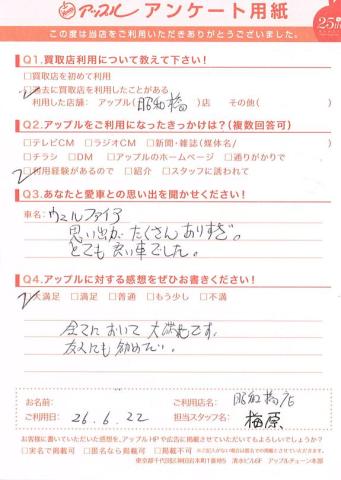 アップル アンケート用紙
25th
この度は当店をご利用いただきありがとうございました。
Q1.買取店利用について教えて下さい!
□買取店を初めて利用
□過去に買取店を利用したことがある
利用した店舗: アップル(昭和橋)店 その他( )
Q2.アップルをご利用になったきっかけは?(複数回答可)
□テレビCM □ラジオCM □新聞・雑誌(媒体名/ )
□チラシ □DM □アップルのホームページ □通りがかりで
□利用経験があるので □紹介 □スタッフに誘われて
Q3.あなたと愛車との思い出を聞かせください!
車名: ヴェルファイア
思い出が たくさん ありすぎ。
とても 良い車でした。
Q4.アップルに対する感想をぜひお書きください!
□大満足 □満足 □普通 □もう少し □不満
全てにおいて 大満足です。
友人にも 勧めたい。
お名前: ご利用店名: 昭和橋店
ご利用日: 26.6.22 担当スタッフ名: 梅原
お客様に書いていただいた感想を、アップルHPや広告に掲載させていただいてもよろしいでしょうか?
□実名で掲載可 □匿名なら掲載可 □掲載不可 ※ご記入がない場合は匿名での掲載とさせていただきます。
東京都千代田区神田岩本町1番地5 清水ビル6F アップルチェーン本部